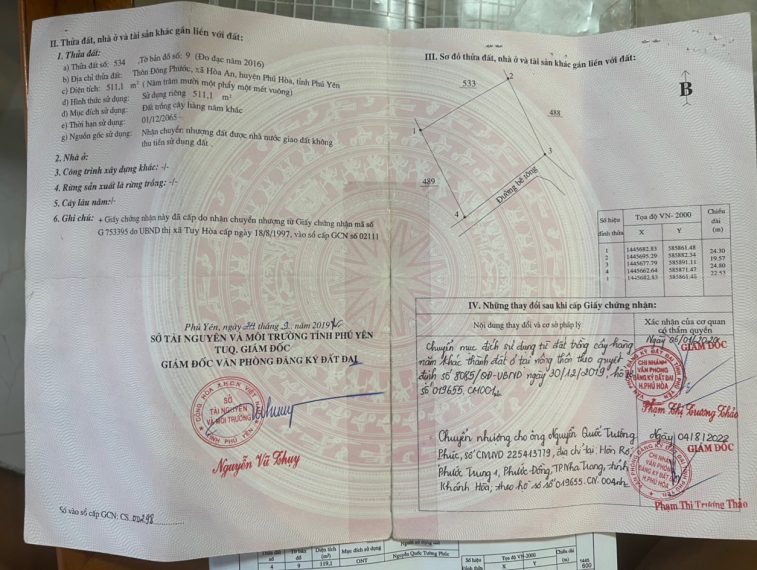 II. Thửa đất, nhà ở và tài sản khác gắn liền với đất:
1. Thửa đất:
a) Thửa đất số: 534 , Tờ bản đồ số: 9 (Đo đạc năm 2016)
b) Địa chỉ thửa đất: Thôn Đông Phước, xã Hòa An, huyện Phú Hòa, tỉnh Phú Yên
c) Diện tích: 511,1 m² (Năm trăm mười một phẩy một mét vuông)
d) Hình thức sử dụng: Sử dụng riêng 511,1 m²
đ) Mục đích sử dụng: Đất trồng cây hàng năm khác
e) Thời hạn sử dụng: 01/12/2065
g) Nguồn gốc sử dụng: Nhận chuyển nhượng đất được nhà nước giao đất không
thu tiền sử dụng đất.
2. Nhà ở:
3. Công trình xây dựng khác: -/-
4. Rừng sản xuất là rừng trồng: -/-
5. Cây lâu năm:/-
6. Ghi chú: + Giấy chứng nhận này đã cấp do nhận chuyển nhượng từ Giấy chứng nhận mã số
G 753395 do UBND thị xã Tuy Hòa cấp ngày 18/8/1997, vào sổ cấp GCN số 02111
Phú Yên, ngày tháng 9 năm 2019
SỞ TÀI NGUYÊN VÀ MÔI TRƯỜNG TỈNH PHÚ YÊN
TUQ. GIÁM ĐỐC
GIÁM ĐỐC VĂN PHÒNG ĐĂNG KÝ ĐẤT ĐAI
CỘNG HÒA X.H.C.N VIỆT NAM
SỞ
TÀI NGUYÊN
VÀ MÔI TRƯỜNG
TỈNH PHÚ YÊN
Nguyễn Vũ Thuy
Số vào sổ cấp GCN: CS. 00298
III. Sơ đồ thửa đất, nhà ở và tài sản khác gắn liền với đất:
B
533
2
488
1
3
489
Đường bê tông
4
Số hiệu đỉnh thửa Tọa độ VN- 2000 Chiều dài (m)
X Y
1 1445682.83 585861.48
24.30
2 1445695.29 585882.34
19.57
3 1445677.79 585891.11
24.80
4 1445662.64 585871.47
22.53
1 1445682.83 585861.48
IV. Những thay đổi sau khi cấp Giấy chứng nhận:
Nội dung thay đổi và cơ sở pháp lý
Xác nhận của cơ quan
có thẩm quyền
Chuyển mục đích sử dụng từ đất trồng cây hàng
năm khác thành đất ở tại nông thôn theo quyết
định số 8085/QĐ-UBND ngày 30/12/2019, hồ sơ
số 019655.CM001
Ngày 06/01/
GIÁM ĐỐC
CHI NHÁNH
VĂN PHÒNG
ĐĂNG KÝ ĐẤT ĐAI
H.PHÚ HÒA
Phạm Thị Trương Thảo
- Chuyển nhượng cho ông Nguyễn Quốc Trường
Phúc, số CMND 225413719, địa chỉ tại: Hòn Rớ,
Phước Trung 1, Phước Đồng, TP Nha Trang, tỉnh
Khánh Hòa, theo hồ sơ số 019655.CN.004
Ngày 04/8/2022
GIÁM ĐỐC
CHI NHÁNH
VĂN PHÒNG
ĐĂNG KÝ ĐẤT ĐAI
H.PHÚ HÒA
Phạm Thị Trương Thảo
Thửa đất số Tờ bản đồ Diện tích (m²) Mục đích sử dụng Nguyễn Quốc Tường Phúc Số hiệu Tọa độ VN-2000 Chiều dài (m)
4 9 119,1 ONT X Y